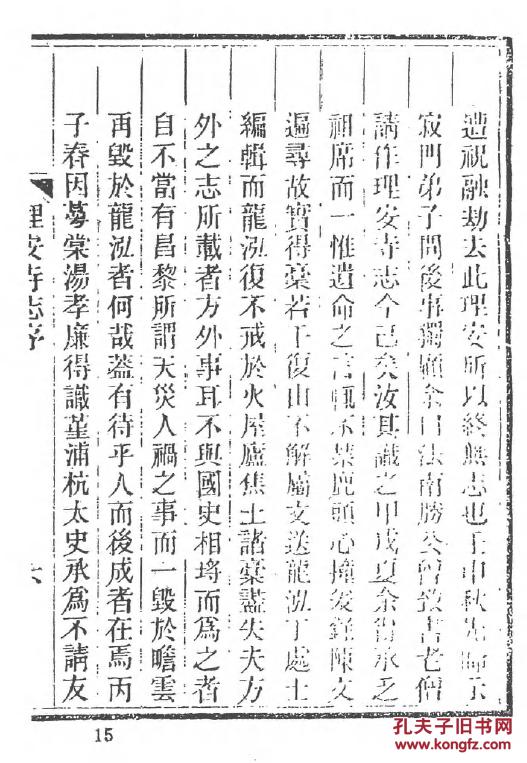 遭祝融劫去此理安所以終無志也壬申秋先師示
寂門弟子問後事獨顧余曰法南勝公曾致書老僧
請作理安寺志今已矣汝其識之甲戌夏余啣承乏
祖席而一惟遺命之言
遍尋故實得稾若干復由不解屬文送龍泓丁處士
編輯而龍泓復不戒於火屋廬焦土諸稾盡失夫方
外之志所載者方外事耳不與國史相埒而爲之者
自不當有昌黎所謂天災人禍之事而一毀於瞻雲
再毀於龍泓者何哉蓋有待乎人而後成者在焉丙
子春因蔓棠湯孝廉得識堇浦杭太史承爲不請友
理安寺志序
六
15
孔夫子旧书网
www.kongfz.com